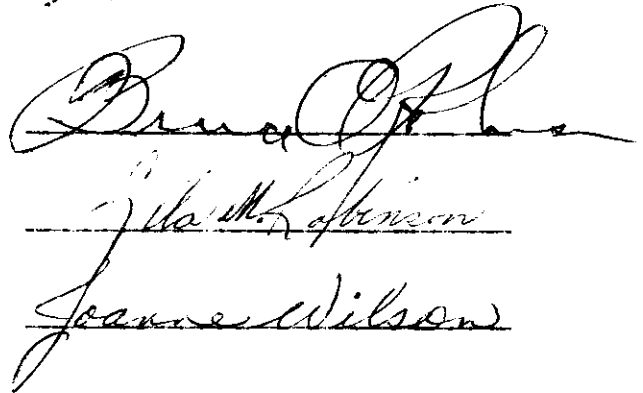 Bruce
M. Robinson
Joanne Wilson